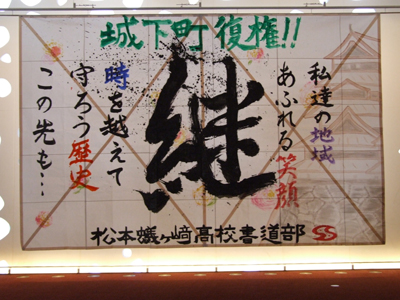 城下町復権!!
私達の地域
あふれる笑顔
継
時を越えて
守ろう歴史
この先も…
松本蟻ヶ崎高校書道部 SS